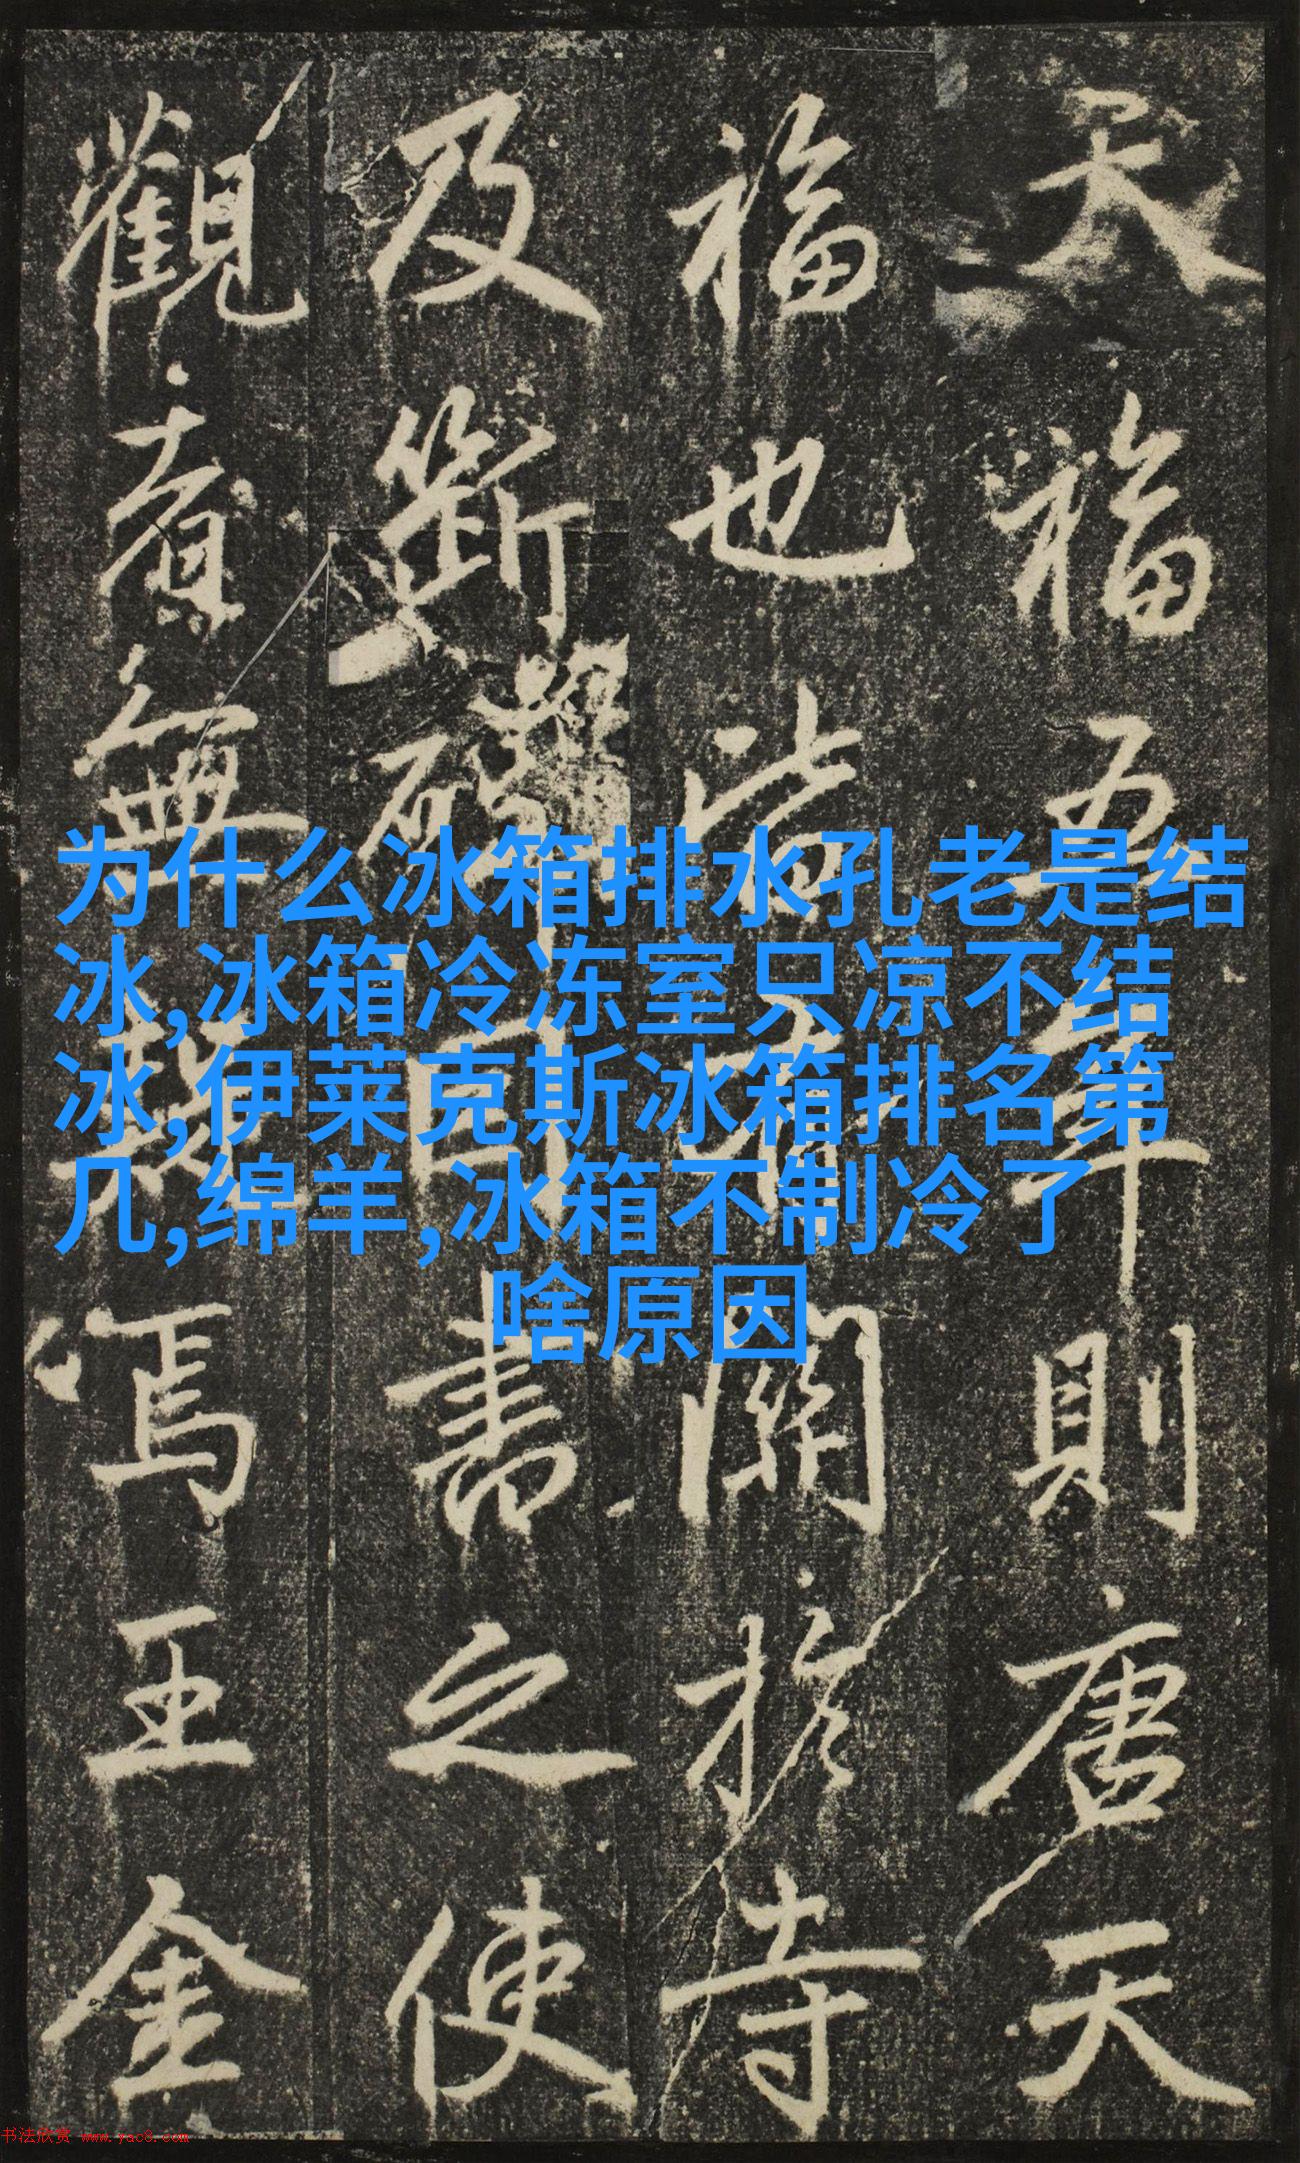 天福五年則唐天
福也皆有關於寺
及斷書之使
觀者無焉王金
为什么冰箱排水孔老是结
冰,冰箱冷冻室只凉不结
冰,伊莱克斯冰箱排名第
几,绵羊,冰箱不制冷了
啥原因
书法欣赏 www.yac8.com